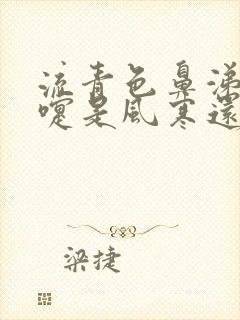 流青色鼻涕
嚏是風寒還
梁捷